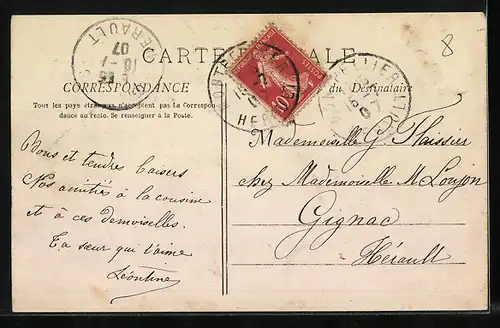 8
CARTE POSTALE
CORRESPONDANCE
du Destinataire
Tous les pays étrangers n'acceptent pas la Correspon-
dance au recto. Se renseigner à la Poste.
HERAULT
18 -7
07
MONTPELLIER
HERAULT
10
POSTES
Bons et tendres baisers
Nos amitiés à la cousine
et à ces demoiselles.
Ta sœur qui t'aime
Léontine
Mademoiselle G. Plaissier
chez Mademoiselle M. Loujon
Gignac
Hérault